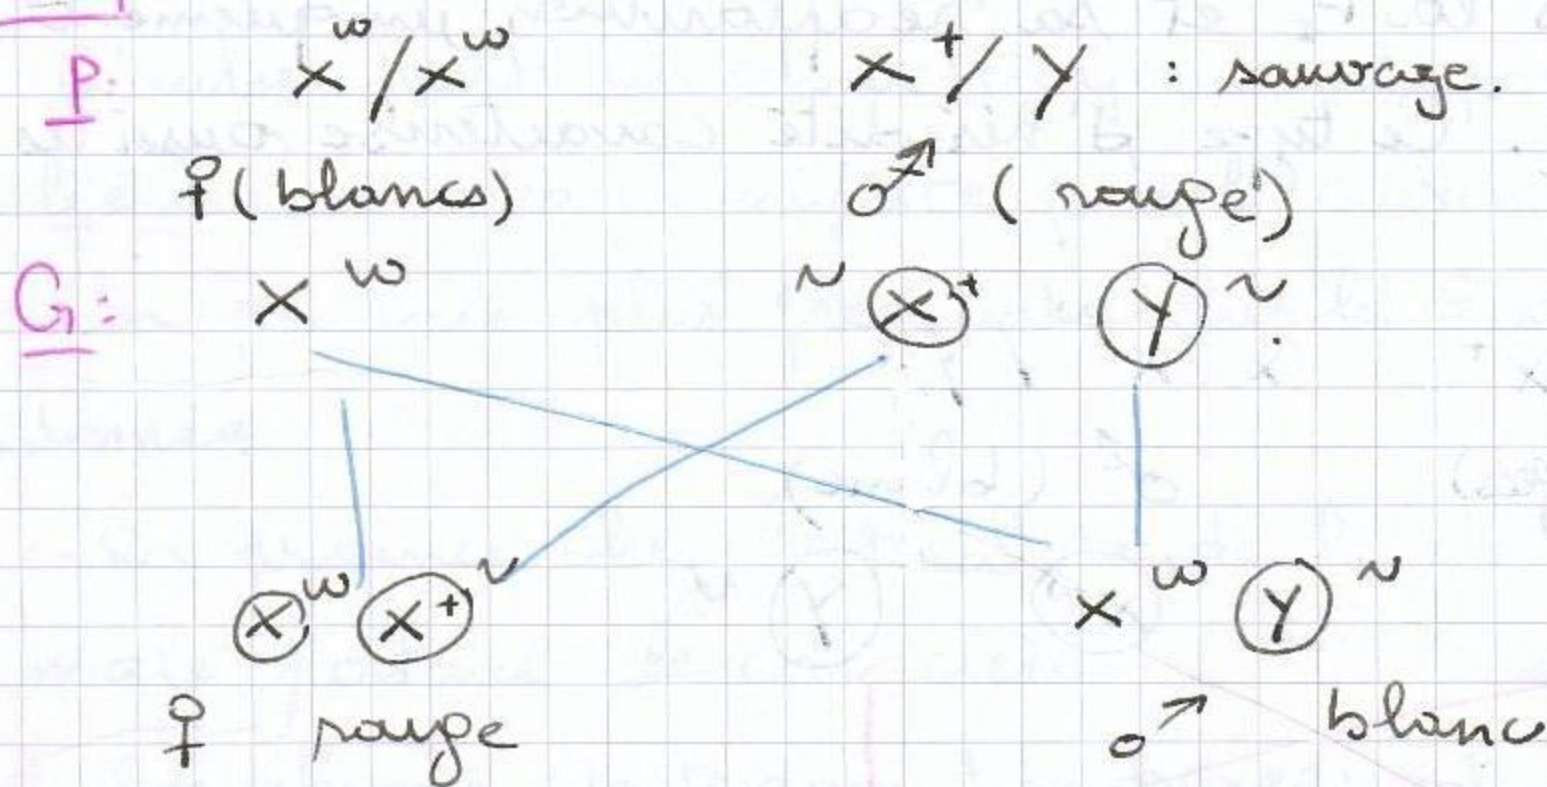 P: X^w/X^w X^+/Y : sauvage.
♀ (blancs) ♂ (rouge)
G: X^w ~ X^+ Y ~.
X^w X^+ ~ X^w Y ~
♀ rouge ♂ blanc